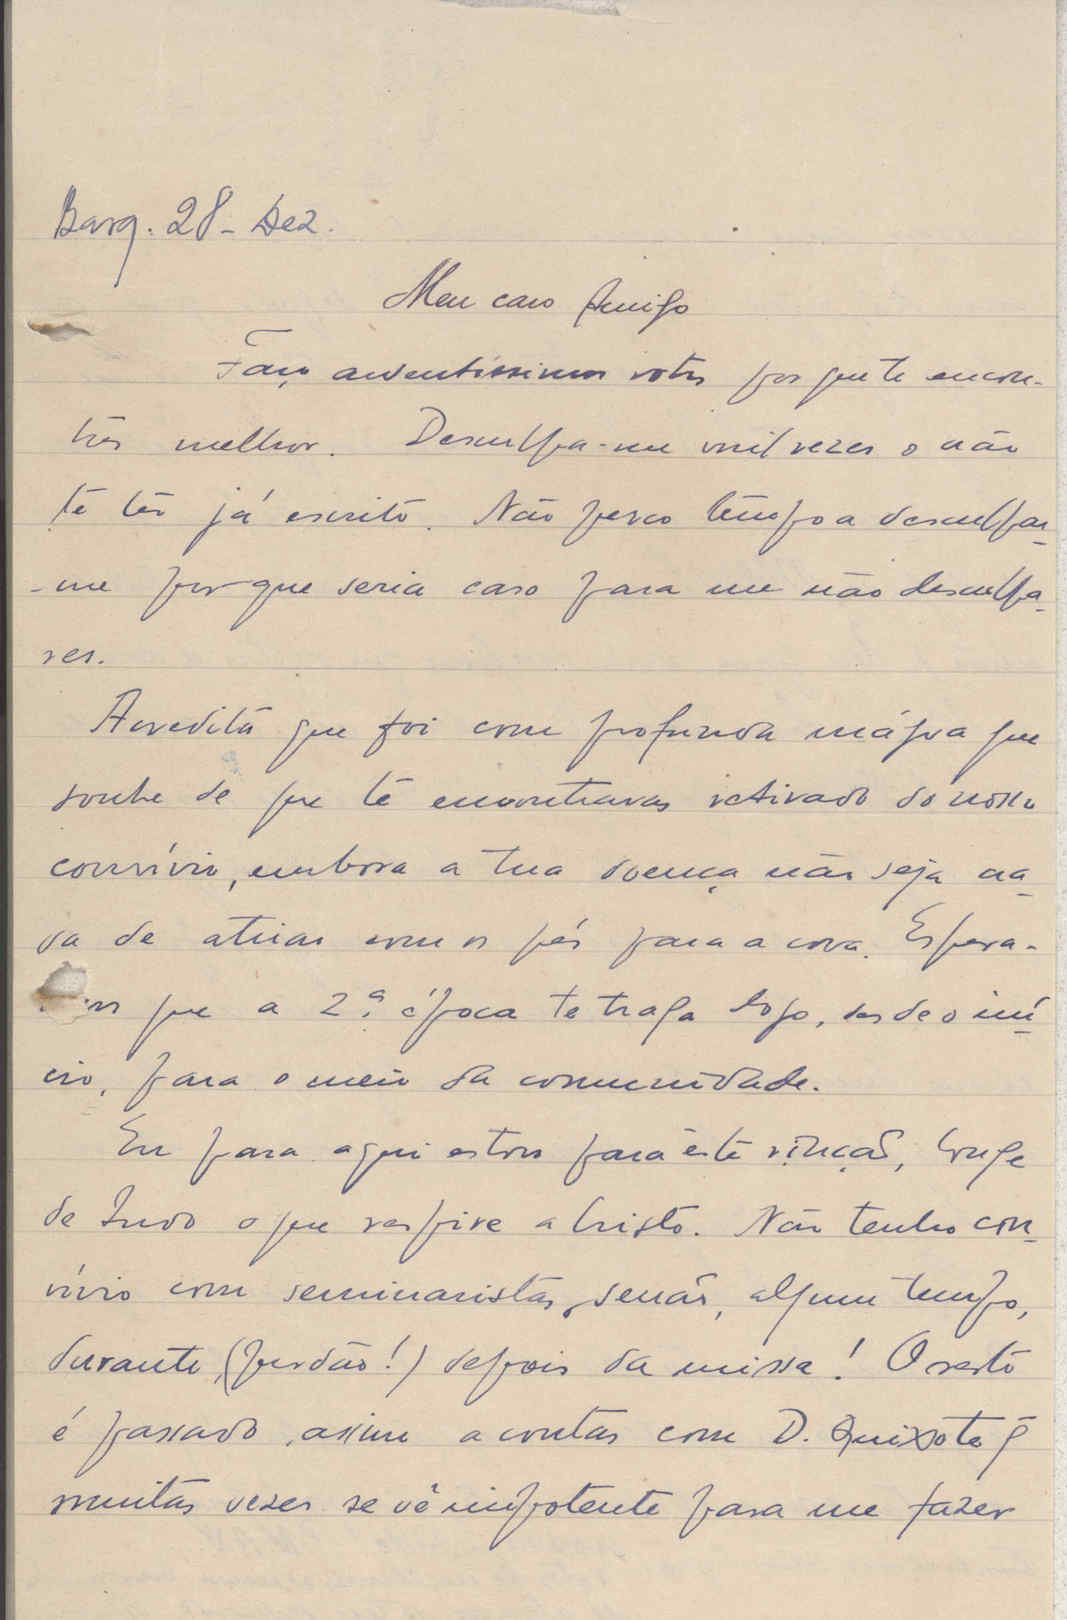 Barq. 28 - Dez.
Meu caro Amigo
Faço ardentíssimos votos por que te encon-
tres melhor. Desculpa-me mil vezes o não
te ter já escrito. Não perco tempo a desculpar-
-me porque seria caso para me não desculpa-
res.
Acredita que foi com profunda mágoa que
soube de que te encontravas retirado do nosso
convívio, embora a tua doença não seja na-
da de atirar com os pés para a cova. Espera-
mos que a 2.ª época te traga logo, desde o iní-
cio, para o meio da comunidade.
Eu para aqui estou para êste rincão, longe
de tudo o que respire a Cristo. Não tenho con-
vívio com seminaristas, senão, algum tempo,
durante, (perdão!) depois da missa! O resto
é passado, assim a contas com D. Quixote q̃
muitas vezes se vê impotente para me fazer